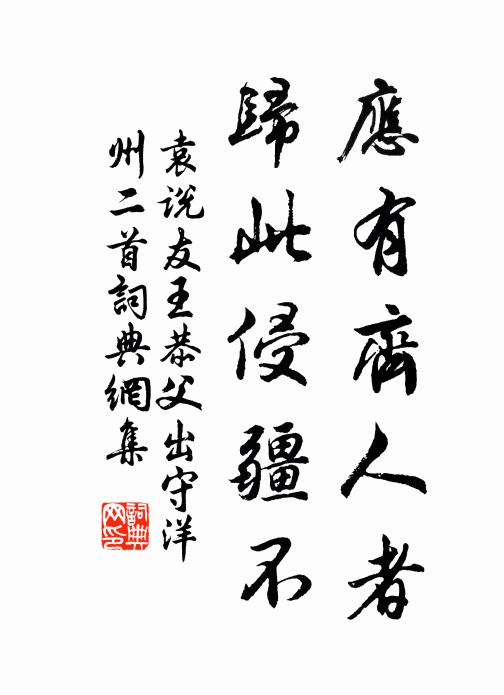 應有齊人者
歸此侵疆不
袁说友王恭父出守洋
州二首詞典網集
詞典
网印